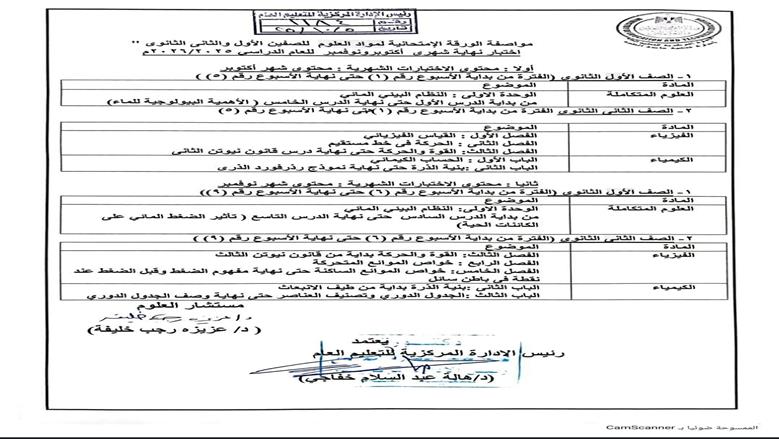 رئيس الإدارة المركزية للتعليم العام
رقم ١١٨٤
تاريخ
مواصفة الورقة الإمتحانية لمواد العلوم للصفين الأول والثانى الثانوى ''
إختبار نهاية شهرى أكتوبرونوفمبر للعام الدراسى ٢٠٢٦/٢٠٢٥م
أولا : محتوى الإختبارات الشهرية : محتوى شهر أكتوبر
١ – الصف الأول الثانوى (الفترة من بداية الأسبوع رقم (١) حتى نهاية الأسبوع رقم (٥))
المادة الموضوع
العلوم المتكاملة الوحدة الاولى : النظام البيني الماني
من بداية الدرس الأول حتى نهاية الدرس الخامس ( الأهمية البيولوجية للماء)
٢ – الصف الثانى الثانوى (الفترة من بداية الأسبوع رقم (١) حتى نهاية الأسبوع رقم (٥)
المادة الموضوع
الفيزياء الفصل الأول : القياس الفيزياني
الفصل الثانى : الحركة فى خط مستقيم
الفصل الثالث: القوة والحركة حتى نهاية درس قانون نيوتن الثانى
الكيمياء الباب الأول : الحساب الكيماني
الباب الثاني: بنية الذرة حتى نهاية نموذج رذرفورد الذرى
ثانيا : محتوى الإختبارات الشهرية : محتوى شهر نوفمبر
١ – الصف الأول الثانوى (الفترة من بداية الأسبوع رقم (٦) حتى نهاية الأسبوع رقم (٩))
المادة الموضوع
العلوم المتكاملة الوحدة الاولى: النظام البيني الماني
من بداية الدرس السادس حتى نهاية الدرس التاسع ( تاثير الضغط الماني على
الكائنات الحية)
٢ – الصف الثانى الثانوى (الفترة من بداية الأسبوع رقم (٦) حتى نهاية الأسبوع رقم (٩))
المادة الموضوع
الفيزياء الفصل الثالث: القوة والحركة بداية من قانون نيوتن الثالث
الفصل الرابع : خواص الموانع المتحركة
الفصل الخامس: خواص الموانع الساكنة حتى نهاية مفهوم الضغط وقبل الضغط عند
نقطة فى باطن سائل
الكيمياء الباب الثانى :بنية الذرة بداية من طيف الانبعاث
الباب الثالث :الجدول الدوري وتصنيف العناصر حتى نهاية وصف الجدول الدوري
مستشار العلوم
(د/ عزيزه رجب خليفة)
يعتمد
رئيس الإدارة المركزية للتعليم العام
(د/هالة عبد السلام خفاجي)
الممسوحة ضوئيا بـ CamScanner